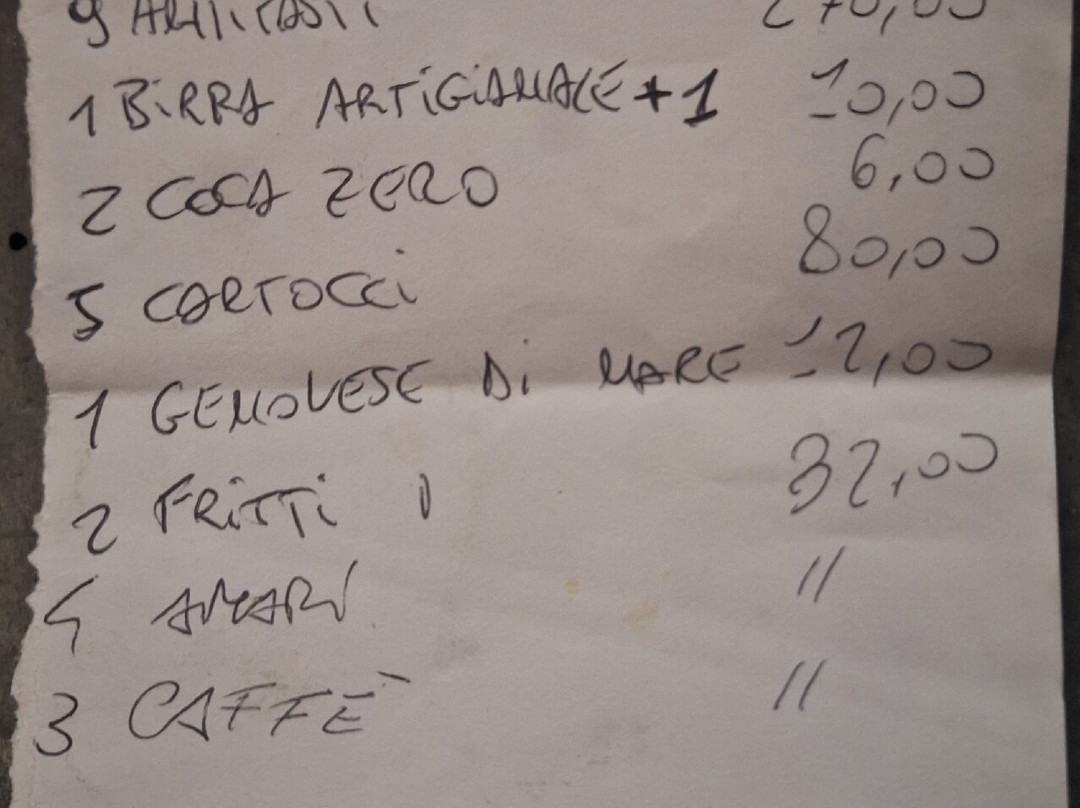 9 270,00
1 BiRRA ARTiGiANALE +1 10,00
2 COCA ZERO 6,00
5 CARTOCCi 80,00
1 GENOVESE Di MARE 12,00
2 FRiTTi 32,00
4 AMARi //
3 CAFFÈ //